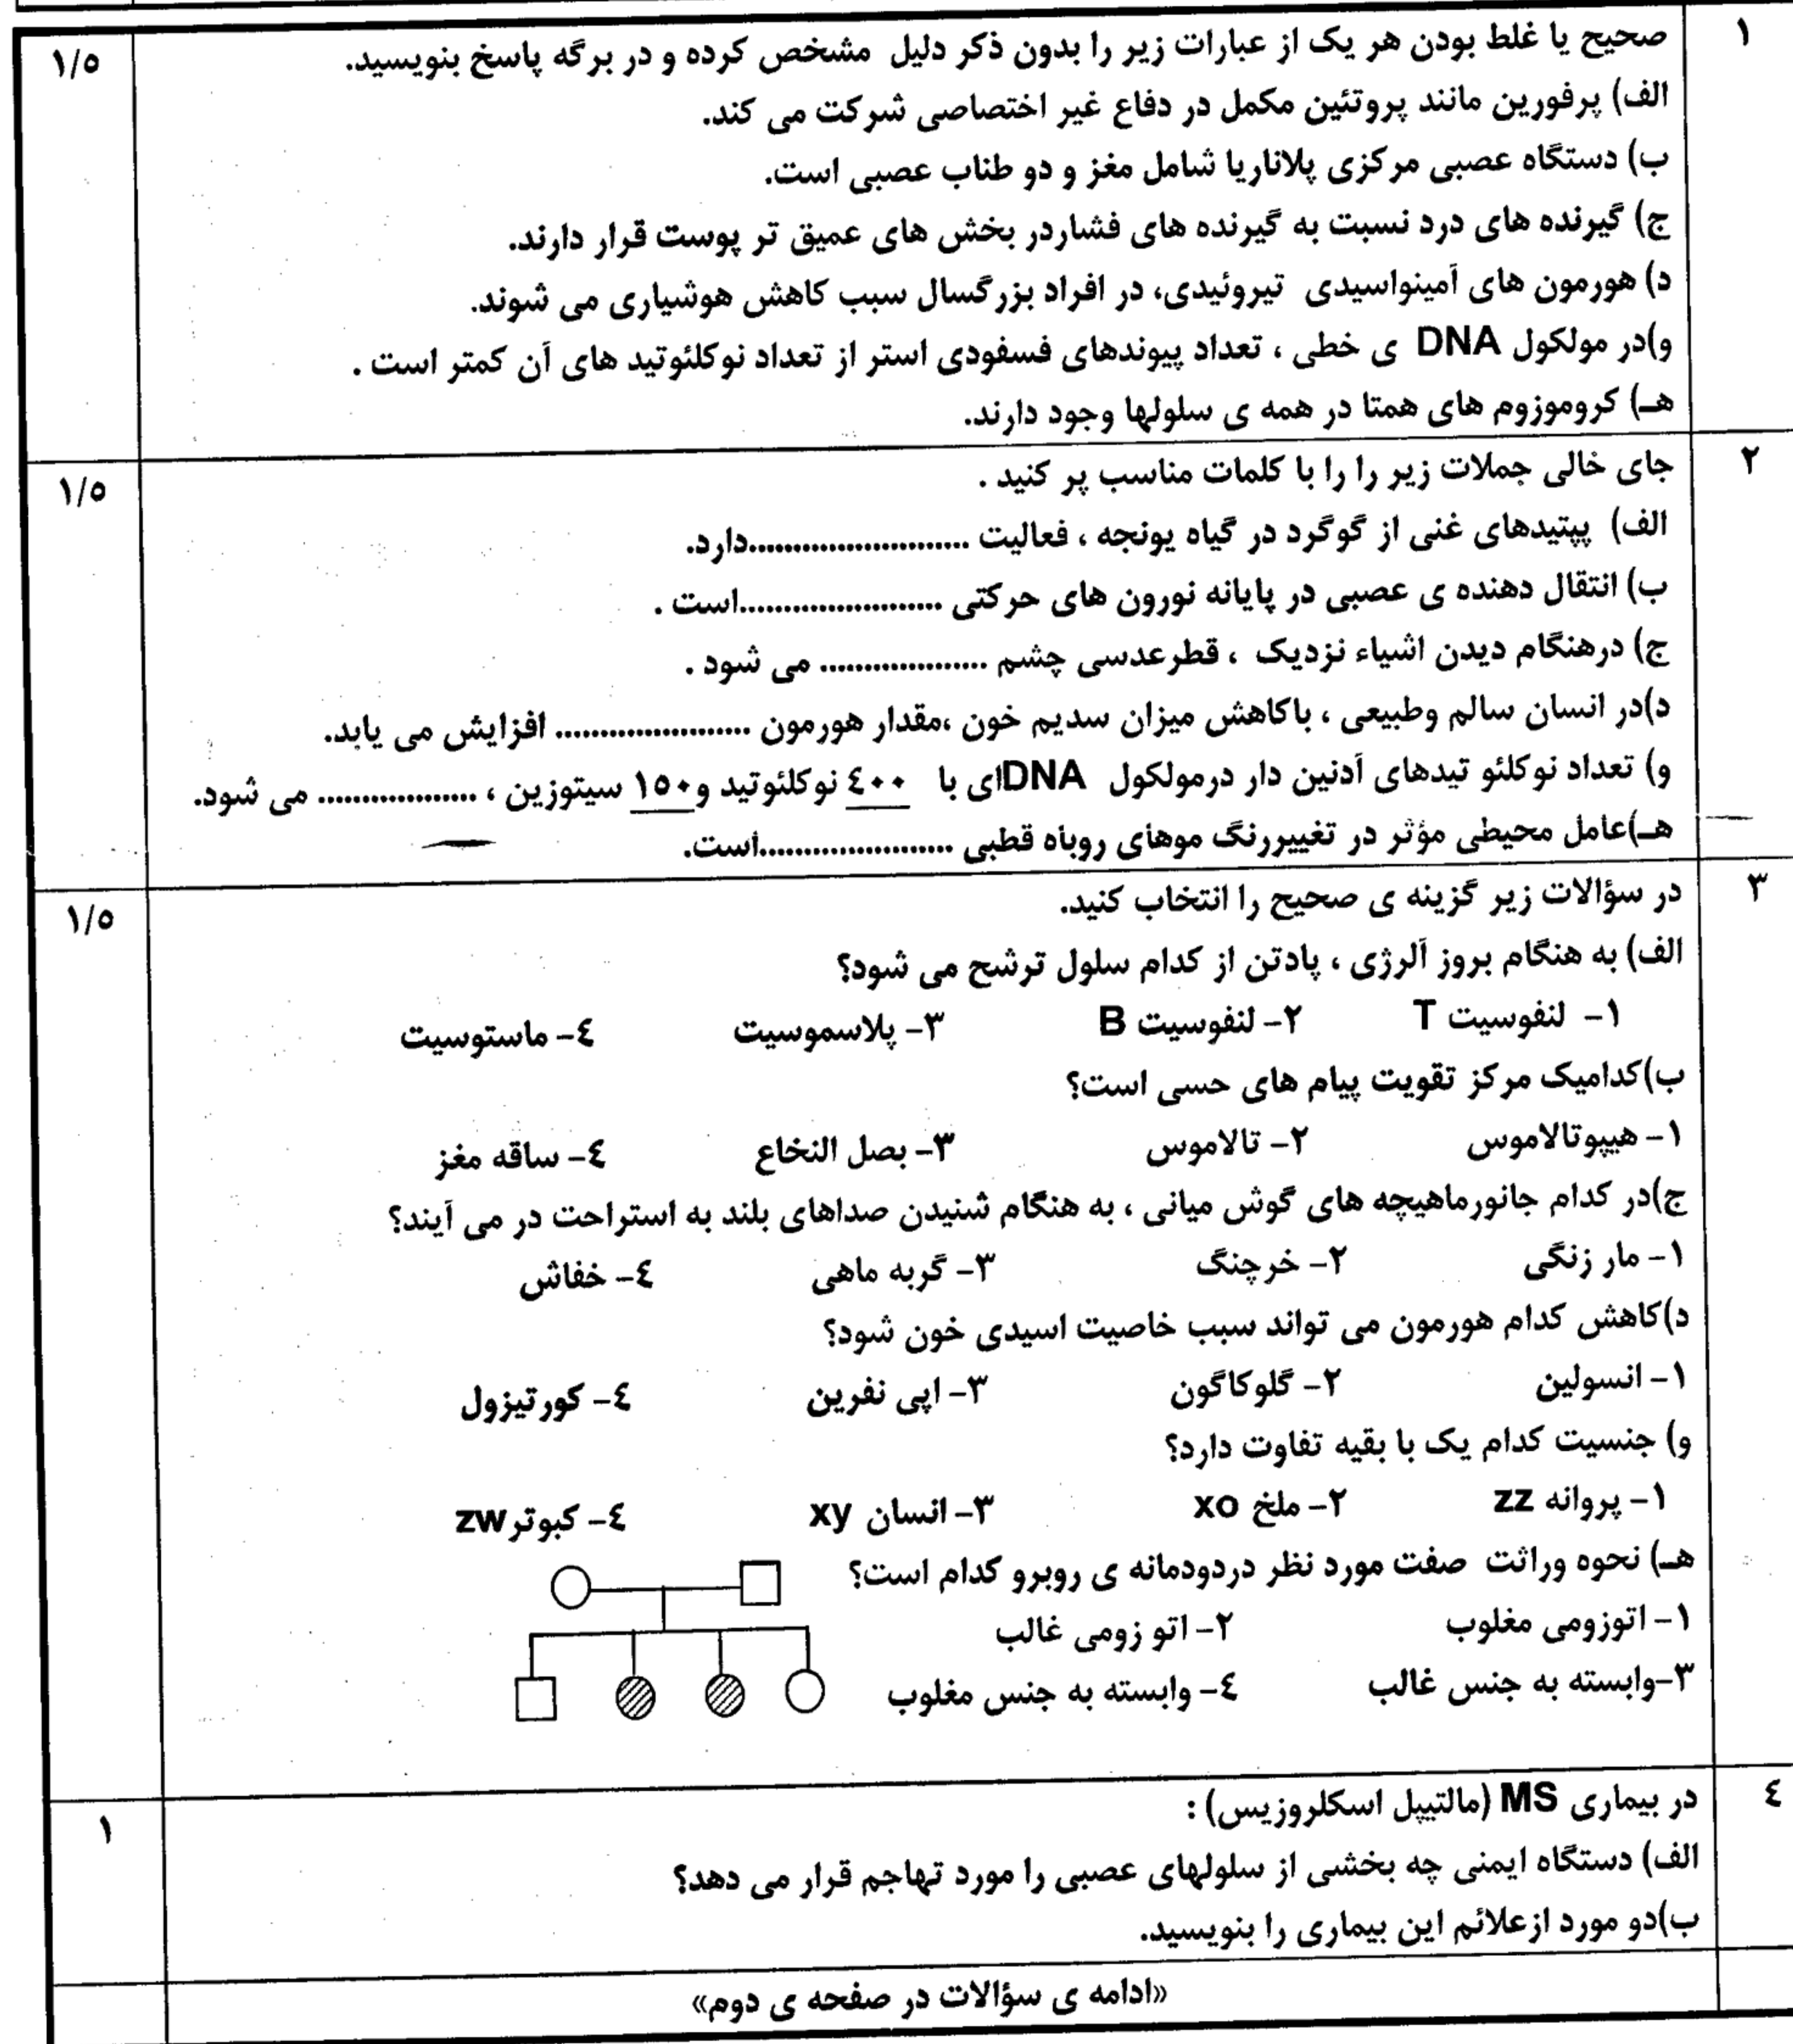 ۱
صحیح یا غلط بودن هر یک از عبارات زیر را بدون ذکر دلیل مشخص کرده و در برگه پاسخ بنویسید.
۱/۵
الف) پرفورین مانند پروتئین مکمل در دفاع غیر اختصاصی شرکت می کند.
ب) دستگاه عصبی مرکزی پلاناریا شامل مغز و دو طناب عصبی است.
ج) گیرنده های درد نسبت به گیرنده های فشاردر بخش های عمیق تر پوست قرار دارند.
د) هورمون های آمینواسیدی تیروئیدی، در افراد بزرگسال سبب کاهش هوشیاری می شوند.
و)در مولکول DNA ی خطی ، تعداد پیوندهای فسفودی استر از تعداد نوکلئوتید های آن کمتر است .
هـ) کروموزوم های همتا در همه ی سلولها وجود دارند.
۲
جای خالی جملات زیر را را با کلمات مناسب پر کنید .
۱/۵
الف) پپتیدهای غنی از گوگرد در گیاه یونجه ، فعالیت ..........................دارد.
ب) انتقال دهنده ی عصبی در پایانه نورون های حرکتی ........................است .
ج) درهنگام دیدن اشیاء نزدیک ، قطرعدسی چشم .................... می شود .
د)در انسان سالم وطبیعی ، باکاهش میزان سدیم خون ،مقدار هورمون ....................... افزایش می یابد.
و) تعداد نوکلئو تیدهای آدنین دار درمولکول DNAای با ۴۰۰ نوکلئوتید و۱۵۰ سیتوزین ، ................... می شود.
هـ)عامل محیطی مؤثر در تغییررنگ موهای روباه قطبی .......................است.
۳
در سؤالات زیر گزینه ی صحیح را انتخاب کنید.
۱/۵
الف) به هنگام بروز آلرژی ، پادتن از کدام سلول ترشح می شود؟
۱- لنفوسیت T ۲- لنفوسیت B ۳- پلاسموسیت ۴- ماستوسیت
ب)کدامیک مرکز تقویت پیام های حسی است؟
۱- هیپوتالاموس ۲- تالاموس ۳- بصل النخاع ۴- ساقه مغز
ج)در کدام جانورماهیچه های گوش میانی ، به هنگام شنیدن صداهای بلند به استراحت در می آیند؟
۱- مار زنگی ۲- خرچنگ ۳- گربه ماهی ۴- خفاش
د)کاهش کدام هورمون می تواند سبب خاصیت اسیدی خون شود؟
۱- انسولین ۲- گلوکاگون ۳- اپی نفرین ۴- کورتیزول
و) جنسیت کدام یک با بقیه تفاوت دارد؟
۱- پروانه zz ۲- ملخ xo ۳- انسان xy ۴- کبوترzw
هـ) نحوه وراثت صفت مورد نظر دردودمانه ی روبرو کدام است؟
۱- اتوزومی مغلوب ۲- اتو زومی غالب
۳-وابسته به جنس غالب ۴- وابسته به جنس مغلوب
۴
در بیماری MS (مالتیپل اسکلروزیس) :
۱
الف) دستگاه ایمنی چه بخشی از سلولهای عصبی را مورد تهاجم قرار می دهد؟
ب)دو مورد ازعلائم این بیماری را بنویسید.
«ادامه ی سؤالات در صفحه ی دوم»